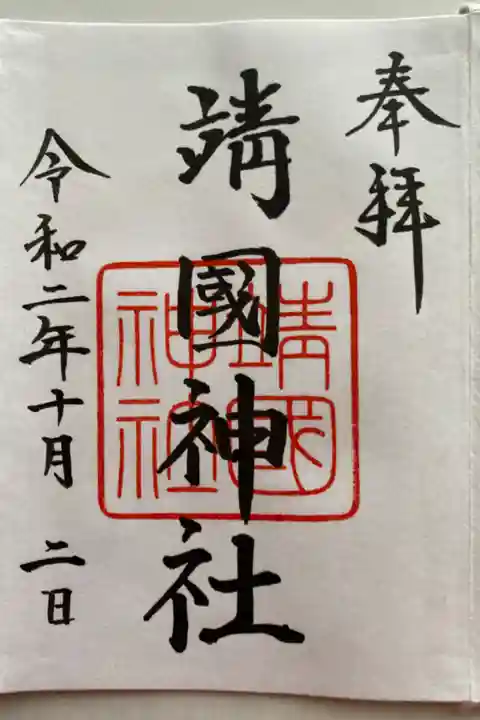 奉拝
靖國神社
靖國神社
令和二年十月二日